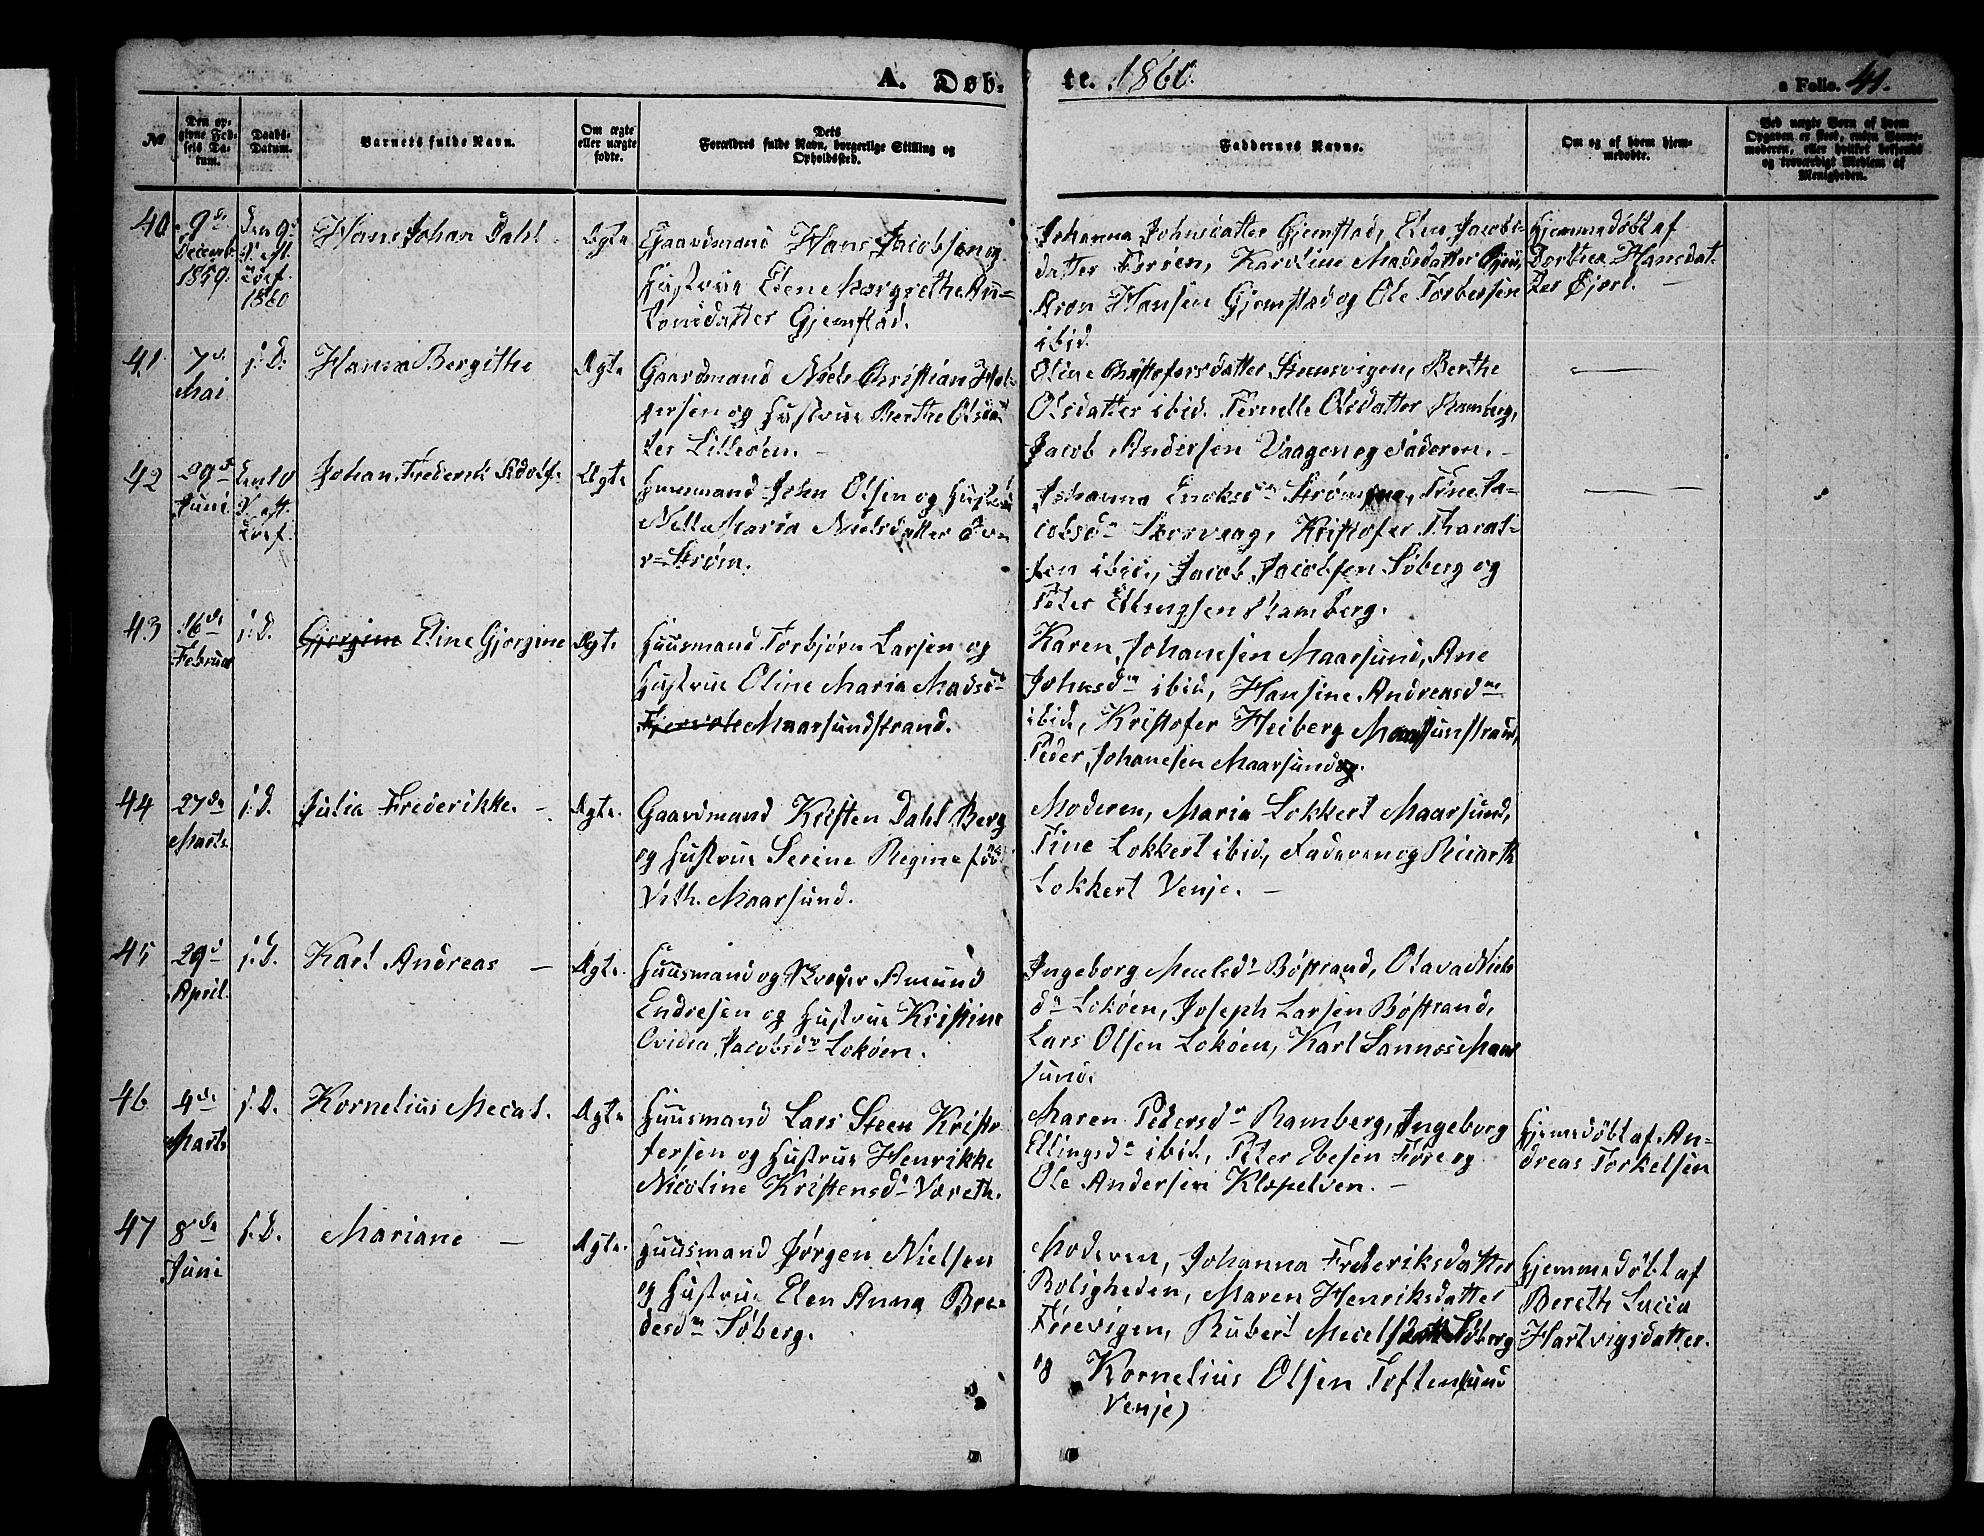 A. Døb- te. 1860. a Folio. 41.
№
Den op-
givne Fød-
sels Da-
tum.
Daabs-
Datum.
Barnets fulde Navn.
Om ægte
eller uægte
fødte.
Dets
Forældres fulde Navn, borgerlige Stilling og
Opholdssted.
Faddernes Navne.
Om og af hvem hjem-
medøbte.
Ved uægte Børn af hvem
Opgaven er skeet, enten Barne-
moderen, eller hvilket bekjendt
og troværdigt Medlem af
Menigheden.
40
9de
Decemb.
1859.
Den 9d
S. eft.
1860
Hans Johan Dahl
Ægte
Gaardmand Hans Jacobsen og
Hustrue Elene Margrethe An-
tonsdatter Gjemstad.
Johanna Johnsdatter Gjemstad, Elen Jacobs-
datter Føröen, Karoline Madsdatter
Aron Hansen Gjemstad og Ole Torbersen
ibid.
Hjemmedøbt af
Dorthea Hansdat-
ter
41
7d.
Mai
s.D.
Hanna Bergithe
Ægte
Gaardmand Niels Christian Hol-
gersen og Hustrue Berthe Olsda-
ter Lilleöen.
Oline Christofersdatter Steensvigen, Berthe
Olsdatter ibid. Pernelle Olsdatter Ramberg,
Jacob Andersen Vaagen og Faderen.
42
29d
Juni
Den 10
S. eft.
Johan Frederik Adolf.
Ægte
Huusmand John Olsen og Hustrue
Nella Maria Nielsdatter
r=Strøm.
Johanna Enoksdr Strømme, Fine Ja-
cobsdr Storvaag, Kristofer Tharal-
sen ibid, Jacob Jacobsen Söberg og
Peter Ellingsen Ramberg.
43
16de
Februar
s.D.
Gjorgine Eline Gjorgine
Ægte
Huusmand Torbjörn Larsen og
Hustrue Eline Maria Madsdr
Maarsundstrand.
Karen Johanesen Maarsund, Ane
Johnsdr ibid, Hansine Andreasdr
ibid, Kristofer Heiberg Maarsunstrand,
Peder Johanesen Maarsund
44
27de
Marts
s.D.
Julia Frederikke. -
Ægte.
Gaardmand Kristen Dahl Berg
og Hustrue Serine Regine föd
Vith. Maarsund.
Moderen, Maria Lokkert Maarsund,
Fine Lokkert ibid, Faderen og Ricart
Lokkert Venje. -
45
29d
April
s.D.
Karl Andreas -
Ægte.
Huusmand og Amund
Endresen og Hustrue Kristine
Ovidia Jacobsdr Loköen.
Ingeborg Meelsdr Böstrand, Olava Niels
dr Loköen, Joseph Larsen Böstrand,
Lars Olsen Loköen, Karl Sannes Maar
sund.
46
4de
Marts
s.D.
Kornelius Mecal.
Ægte
Huusmand Lars Steen Kristo-
fersen og Hustrue Henrikke
Nicoline Kristensdr Væreth.
Maren Pedersdr Ramberg, Ingeborg
Ellingsdr ibid, Peter Ebesen Före og
Ole Andersen Klopelven. -
Hjemedøbt af An-
dreas Torkelsen
47
8de
Juni
s.D.
Mariane -
Ægte.
Huusmand Jørgen Nielsen
og Hustrue Elen Anna Bre-
desdr Söberg.
Moderen, Johanna Frederiksdatter
Roligheden, Maren Henriksdatter
Förevigen, Rubert Söberg
og Kornelius Olsen Toftensund
Venje)
Hjemmedøbt af
Bereth Lucia
Hartvigsdatter.